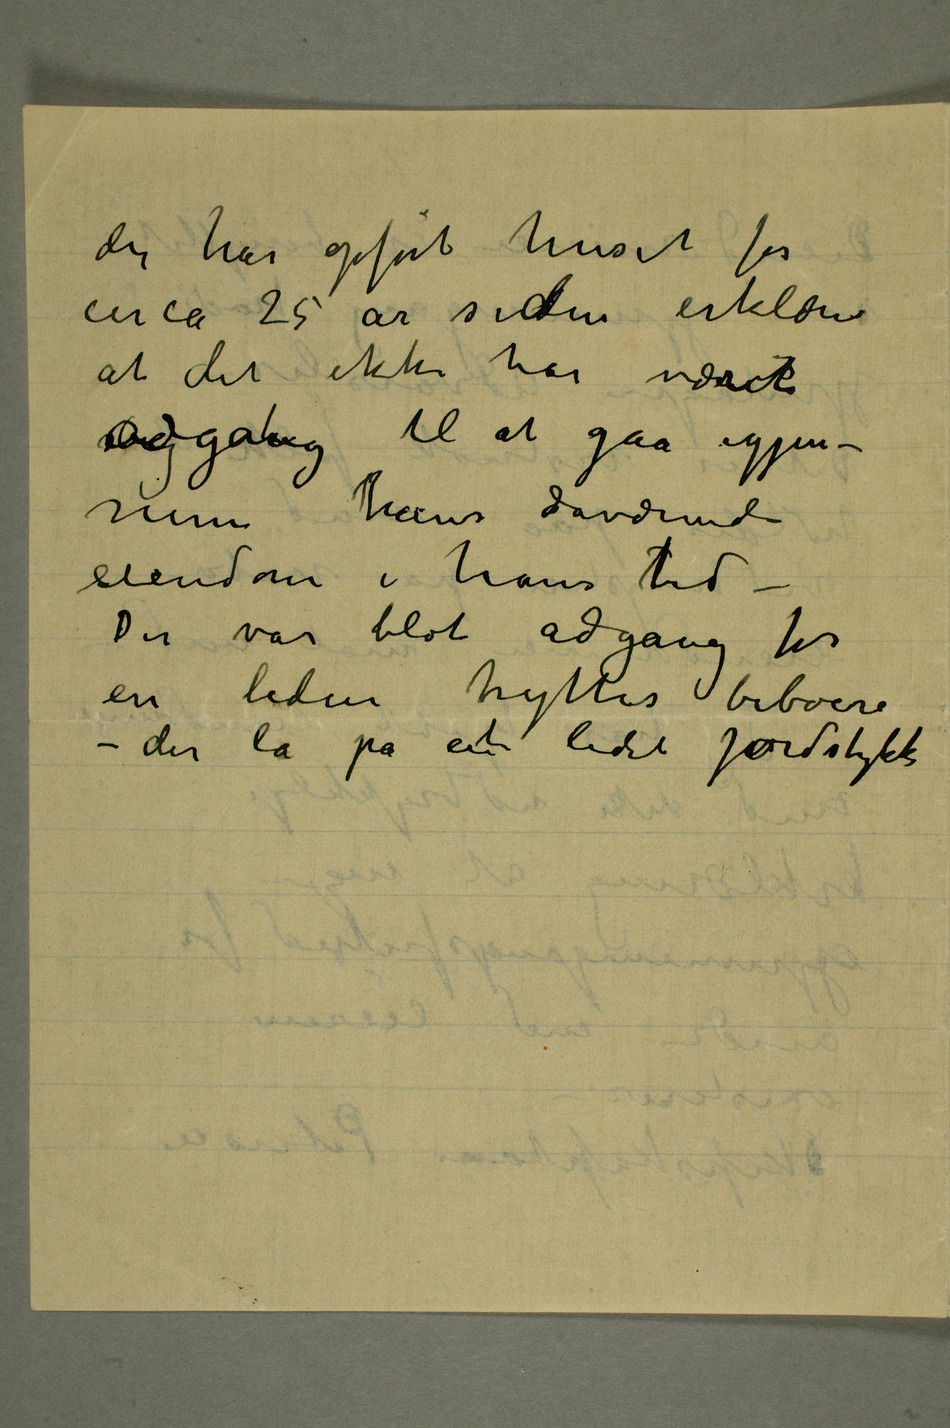 der har opført huset for
circa 25 år siden erklærer
at det ikke har været
adgang til at gaa igjen-
nem hans daværende
eiendom i hans tid –
Der var blot adgang for
en liden hyttes beboere
– der lå på et lidet jordstykke